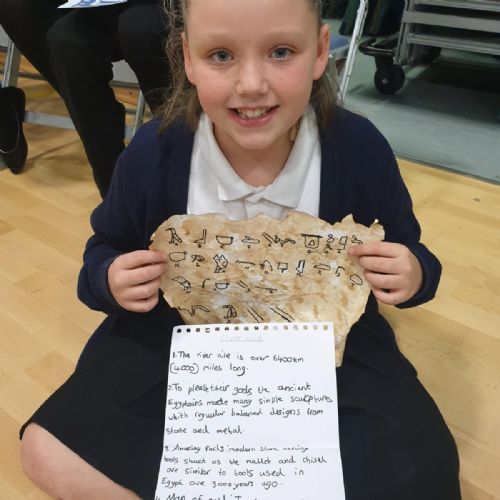 1. The river nile is over 6400km
(4000) miles long.
2. To please their gods the ancient
Egyptains made many simple sculptures
with regular balanced designs from
stone and metal.
3. Amazing facts: modern stone carving
tools shuch as the mallet and chisel
are similar to tools used in
Egypt over 3000 years ago.